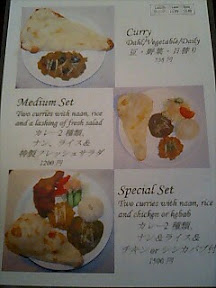 Curry
Dahl/Vegetable/Daily
豆・野菜・日替り
Medium Set
Two curries with naan, rice
and a lashing of fresh salad
カレー2種類、
ナン、ライス&
特製フレッシュサラダ
Special Set
Two curries with naan, rice
and chicken or kebab
カレー2種類、
ナン&ライス&
チキン or シシカバブ付
1500円